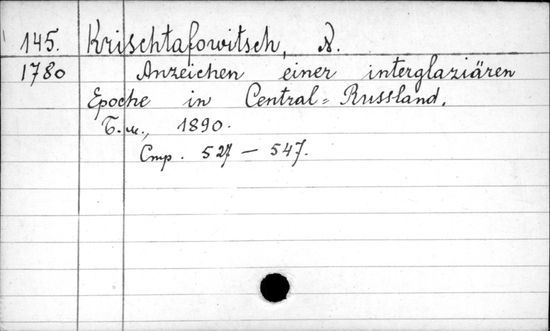 145. Krischtafowitsch, N.
1780 Anzeichen einer interglaziären
Epoche in Central-Russland.
Б.м., 1890.
Стр. 527 — 547.